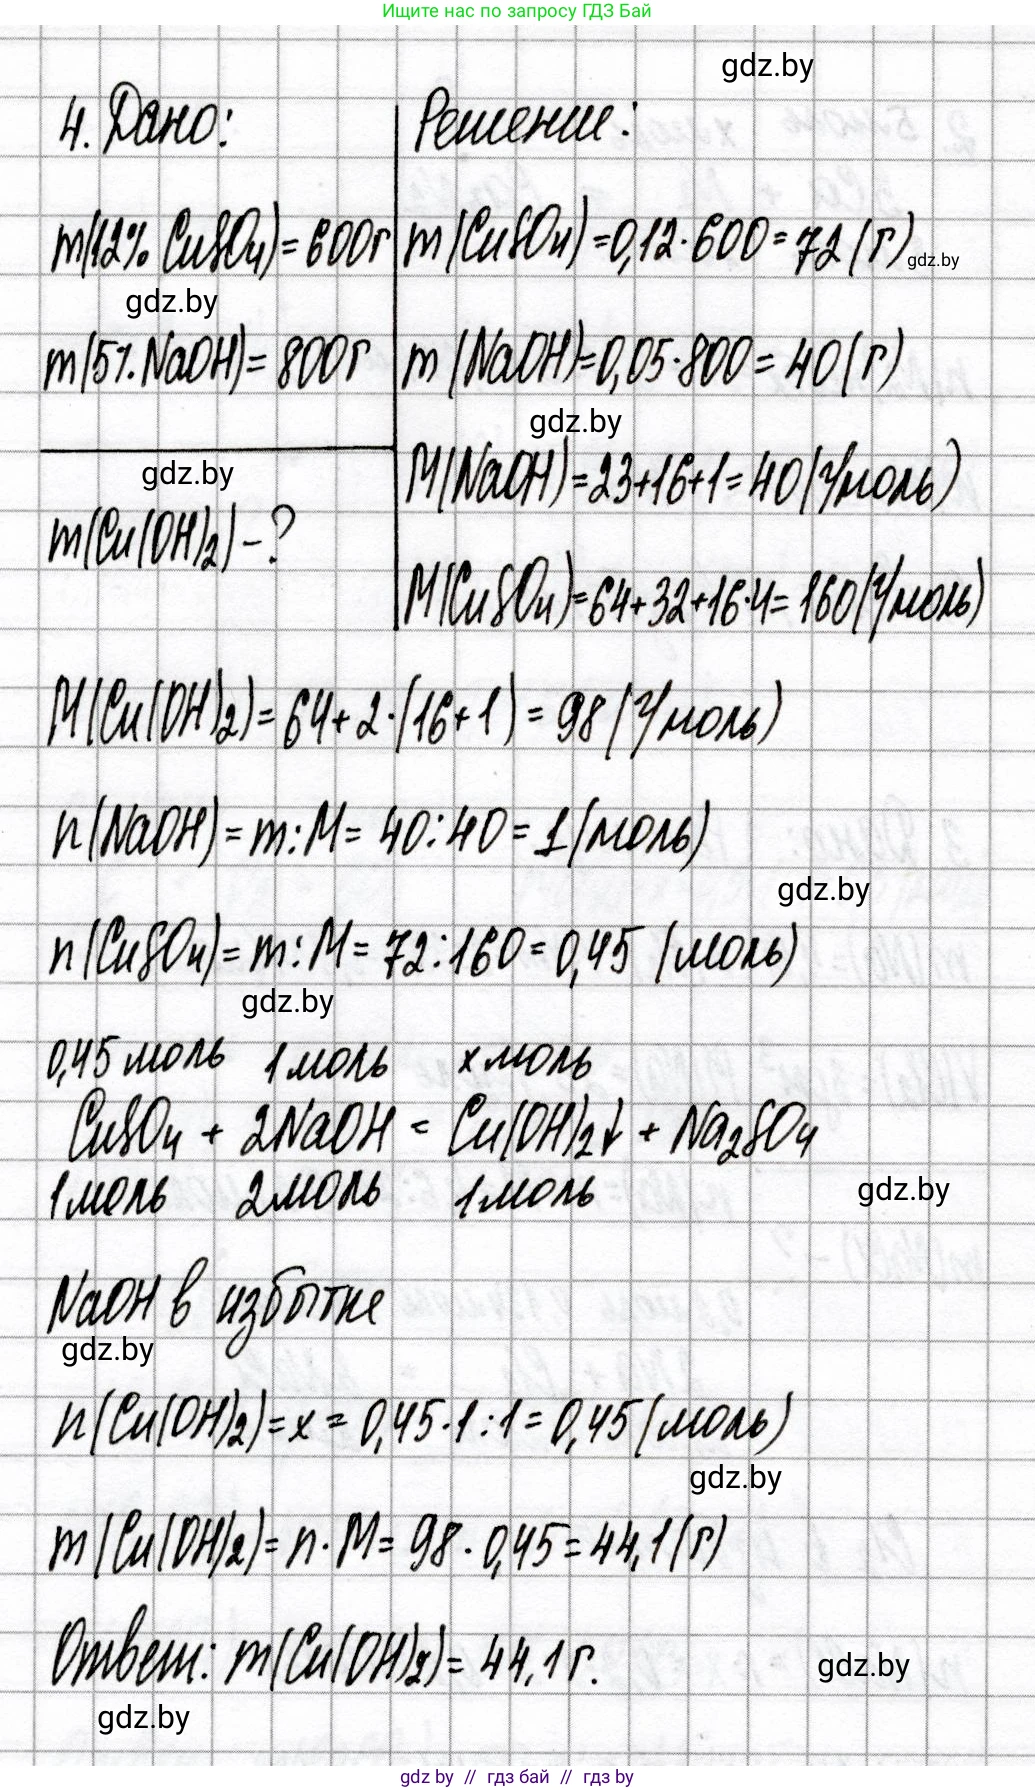 Ищите нас по запросу ГДЗ Бай
gdz.by
4. Дано:
Решение:
m(12% CuSO₄) = 600г
m(CuSO₄) = 0,12·600 = 72 (г)
gdz.by
gdz.by
m(5% NaOH) = 800г
m(NaOH) = 0,05·800 = 40 (г)
gdz.by
gdz.by
M(NaOH) = 23+16+1 = 40 (г/моль)
m(Cu(OH)₂) - ?
M(CuSO₄) = 64+32+16·4 = 160 (г/моль)
M(Cu(OH)₂) = 64+2·(16+1) = 98 (г/моль)
n(NaOH) = m:M = 40:40 = 1 (моль)
gdz.by
n(CuSO₄) = m:M = 72:160 = 0,45 (моль)
gdz.by
0,45 моль 1 моль x моль
CuSO₄ + 2NaOH = Cu(OH)₂↓ + Na₂SO₄
1 моль 2 моль 1 моль
gdz.by
NaOH в избытке
gdz.by
n(Cu(OH)₂) = x = 0,45·1:1 = 0,45 (моль)
gdz.by
m(Cu(OH)₂) = n·M = 98·0,45 = 44,1 (г)
Ответ: m(Cu(OH)₂) = 44,1 г.
gdz.by
gdz.by
gdz.by // гдз бай // гдз by